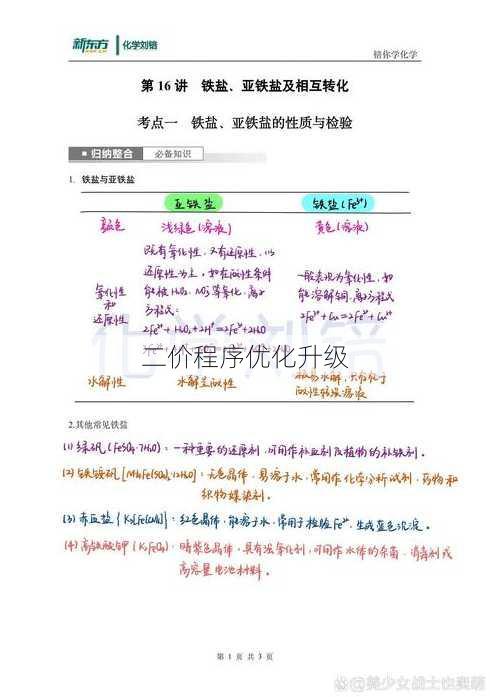 新东方 化学刘锴
锴你学化学
第 16 讲 铁盐、亚铁盐及相互转化
考点一 铁盐、亚铁盐的性质与检验
归纳整合 必备知识
1. 铁盐与亚铁盐
亚铁盐 铁盐(Fe³⁺)
颜色 浅绿色(溶液) 黄色(溶液)
既有氧化性,又有还原性,以
还原性为主,
一般表现为氧化性,
氧化性
和
还原性
能溶解铜,离子方程式
方程式:
2Fe³⁺+Cu=2Fe²⁺+Cu²⁺
2Fe²⁺+H₂O₂+2H⁺=2Fe³⁺+2H₂O
化学刘锴
二价程序优化升级
水解性 水解呈酸性
极易水解,只存在于
酸性较强溶液
2.其他常见铁盐
(1) 绿矾(FeSO₄·7H₂O):一种重要的还原剂,可用作补血剂及植物的补铁剂。
(2) 铁铵矾 :无色晶体,易溶于水,常用作化学分析试剂、药物和
织物媒染剂。
(3) 赤血盐 :红色晶体,能溶于水,常用于检验Fe²⁺,生成蓝色沉淀。
(4) 高铁酸钾(K₂FeO₄):暗紫色晶体,具有强氧化剂,可用作水体的杀菌、消毒剂或
高容量电池材料。
第 1 页 共 3 页
@美少女战士也卖萌